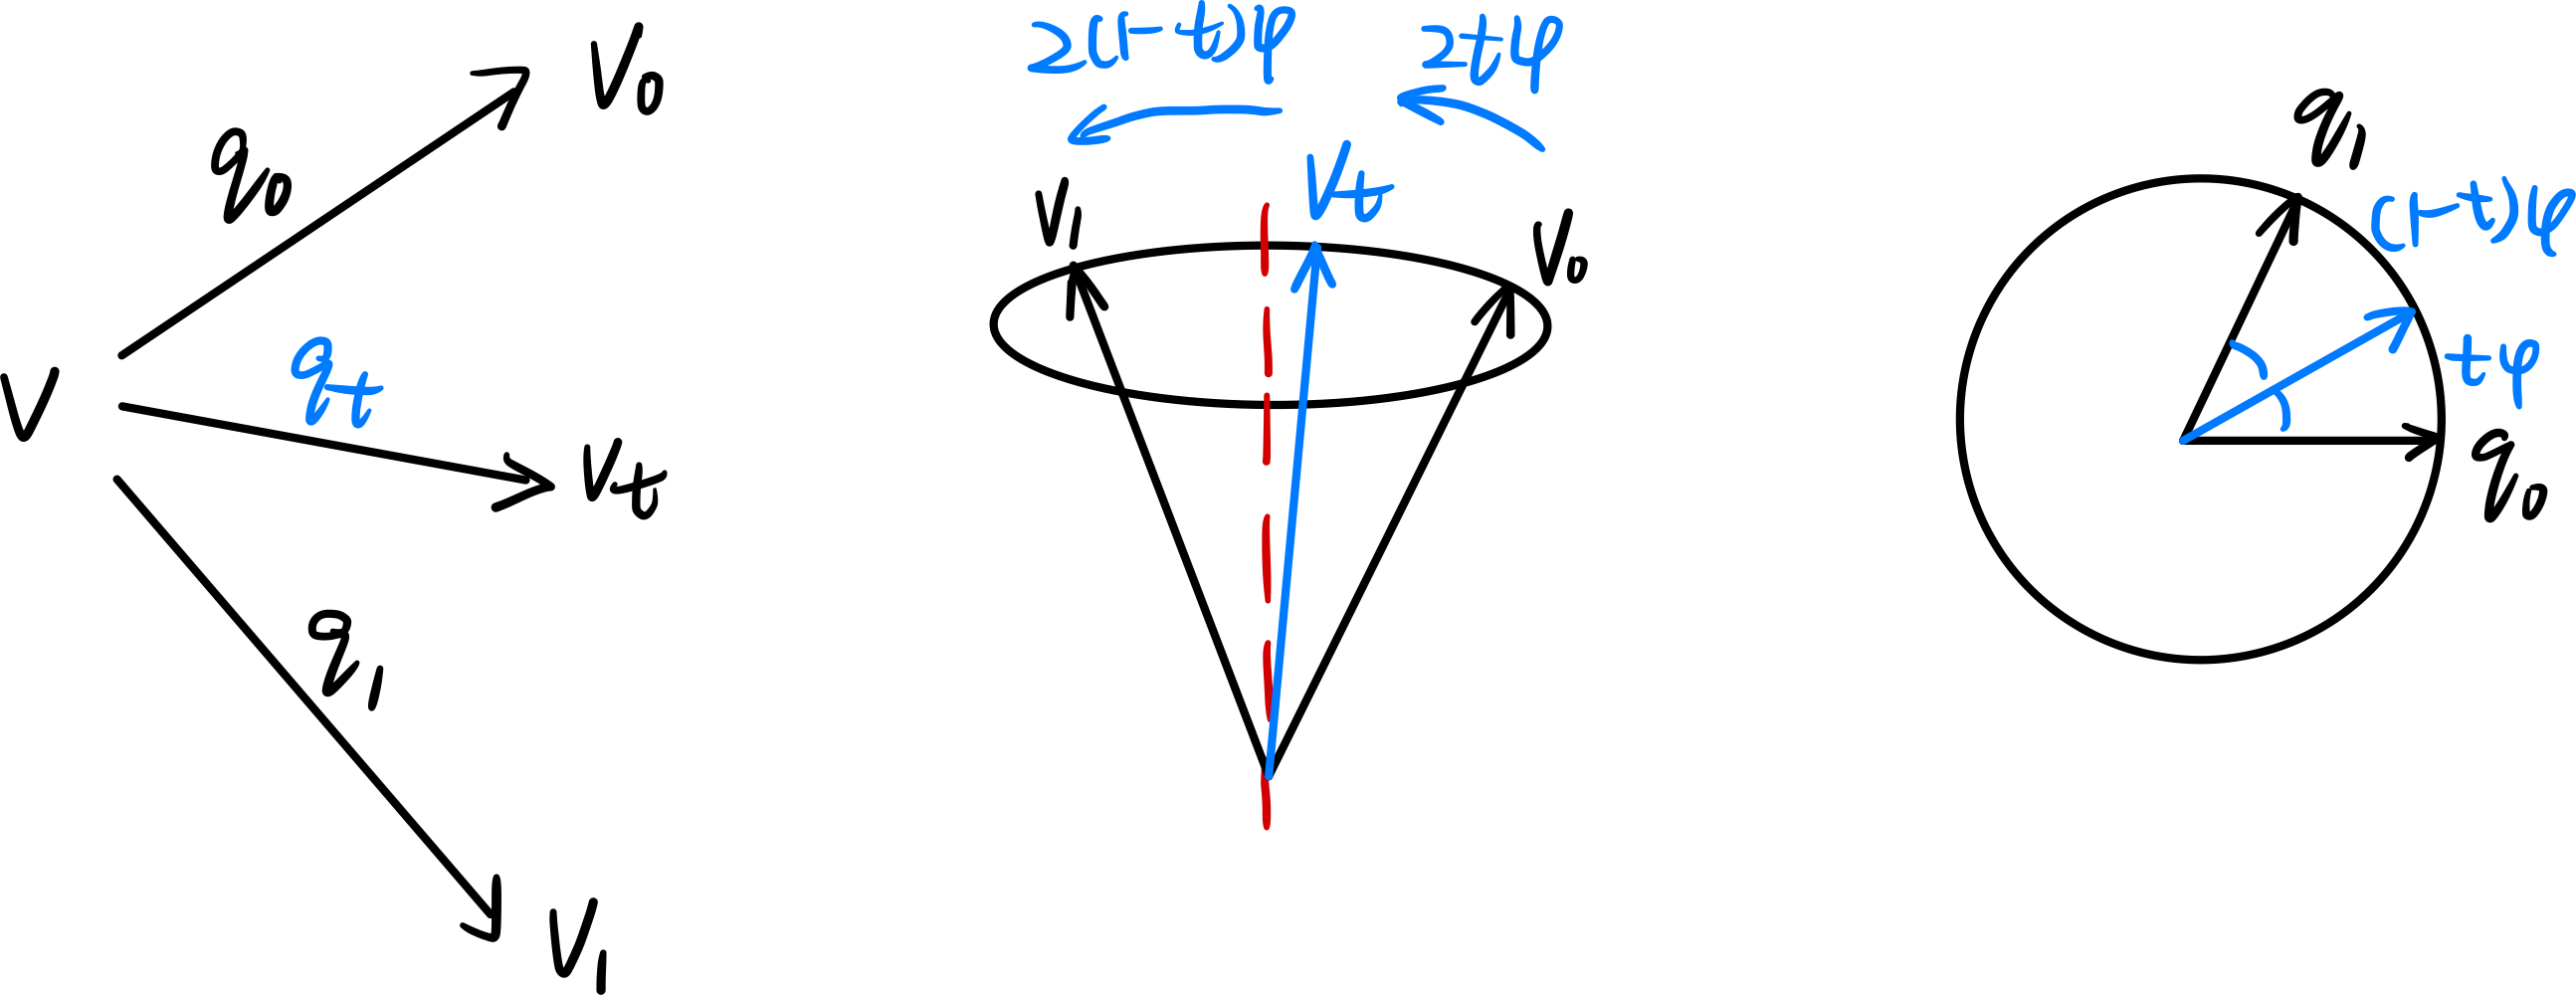 V₀
q₀
V
qₜ
Vₜ
q₁
V₁
2(1-t)φ
2tφ
V₁
Vₜ
V₀
q₁
(1-t)φ
tφ
q₀